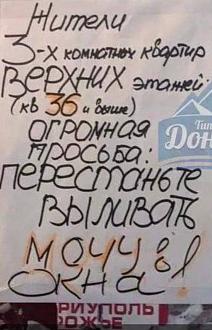 Жители
3-х комнатных квартир
ВЕРХНИХ этажей
(кв 36 и выше)
ОГРОМНАЯ
ПРОСЬБА:
ПЕРЕСТАНЬТЕ
ВЫЛИВАТЬ
МОЧУ в
ОКНА!
Тип
Дон
РИУПОЛЬ
РОЖЬЕ